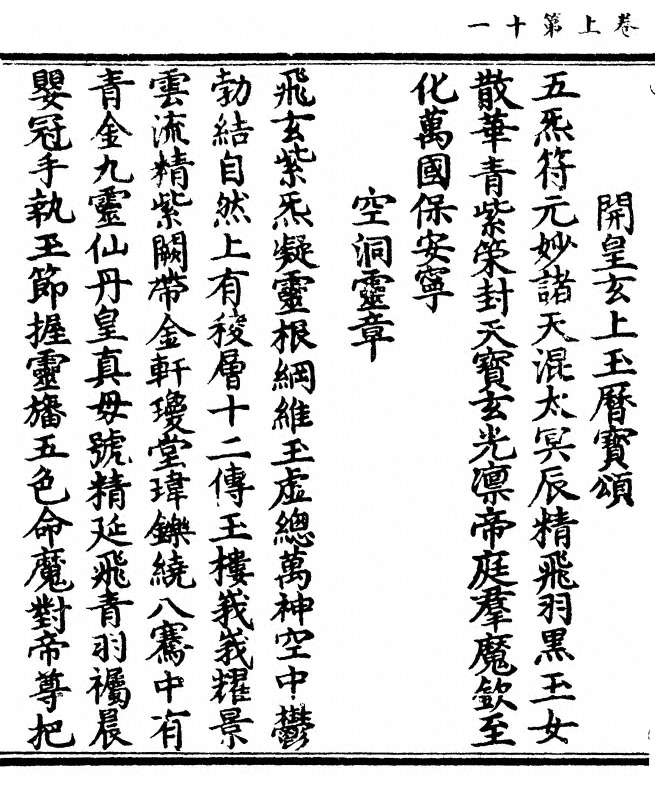 卷上第十一
開皇玄上玉曆寶頌
五炁符元妙諸天混太冥辰精飛羽黑玉女
散華青紫筞封天寶玄光凛帝庭羣魔欽至
化萬國保安寧
空洞靈章
飛玄紫炁凝靈根綱維玉虛總萬神空中鬱
勃結自然上有稜層十二傳玉樓峩峩耀景
雲流精紫闕帶金軒瓊堂瑋鑠繞八騫中有
青金九靈仙丹皇真毋號精延飛青羽襡晨
嬰冠手執玉節握靈旛五色命魔對帝尊把